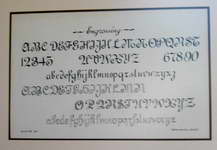 Engrossing
ABCDEFGHIJKLMNOPQRST
12345 UVWXYZ 67890
abcdefghijklmnopqrstuvwxyz
ABCDEFGHIJKLMN
OPQRSTUVWXYZ
abcdefghijklmnopqrstuvwxyz